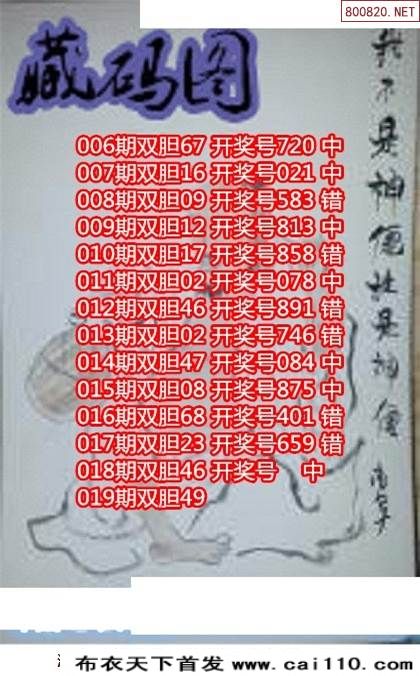 800820.NET
藏码图
006期双胆67 开奖号720 中
007期双胆16 开奖号021 中
008期双胆09 开奖号583 错
009期双胆12 开奖号813 中
010期双胆17 开奖号858 错
011期双胆02 开奖号078 中
012期双胆46 开奖号891 错
013期双胆02 开奖号746 错
014期双胆47 开奖号084 中
015期双胆08 开奖号875 中
016期双胆68 开奖号401 错
017期双胆23 开奖号659 错
018期双胆46 开奖号 中
019期双胆49
我不是神僊
是神僊
布衣天下首发 www.cai110.com